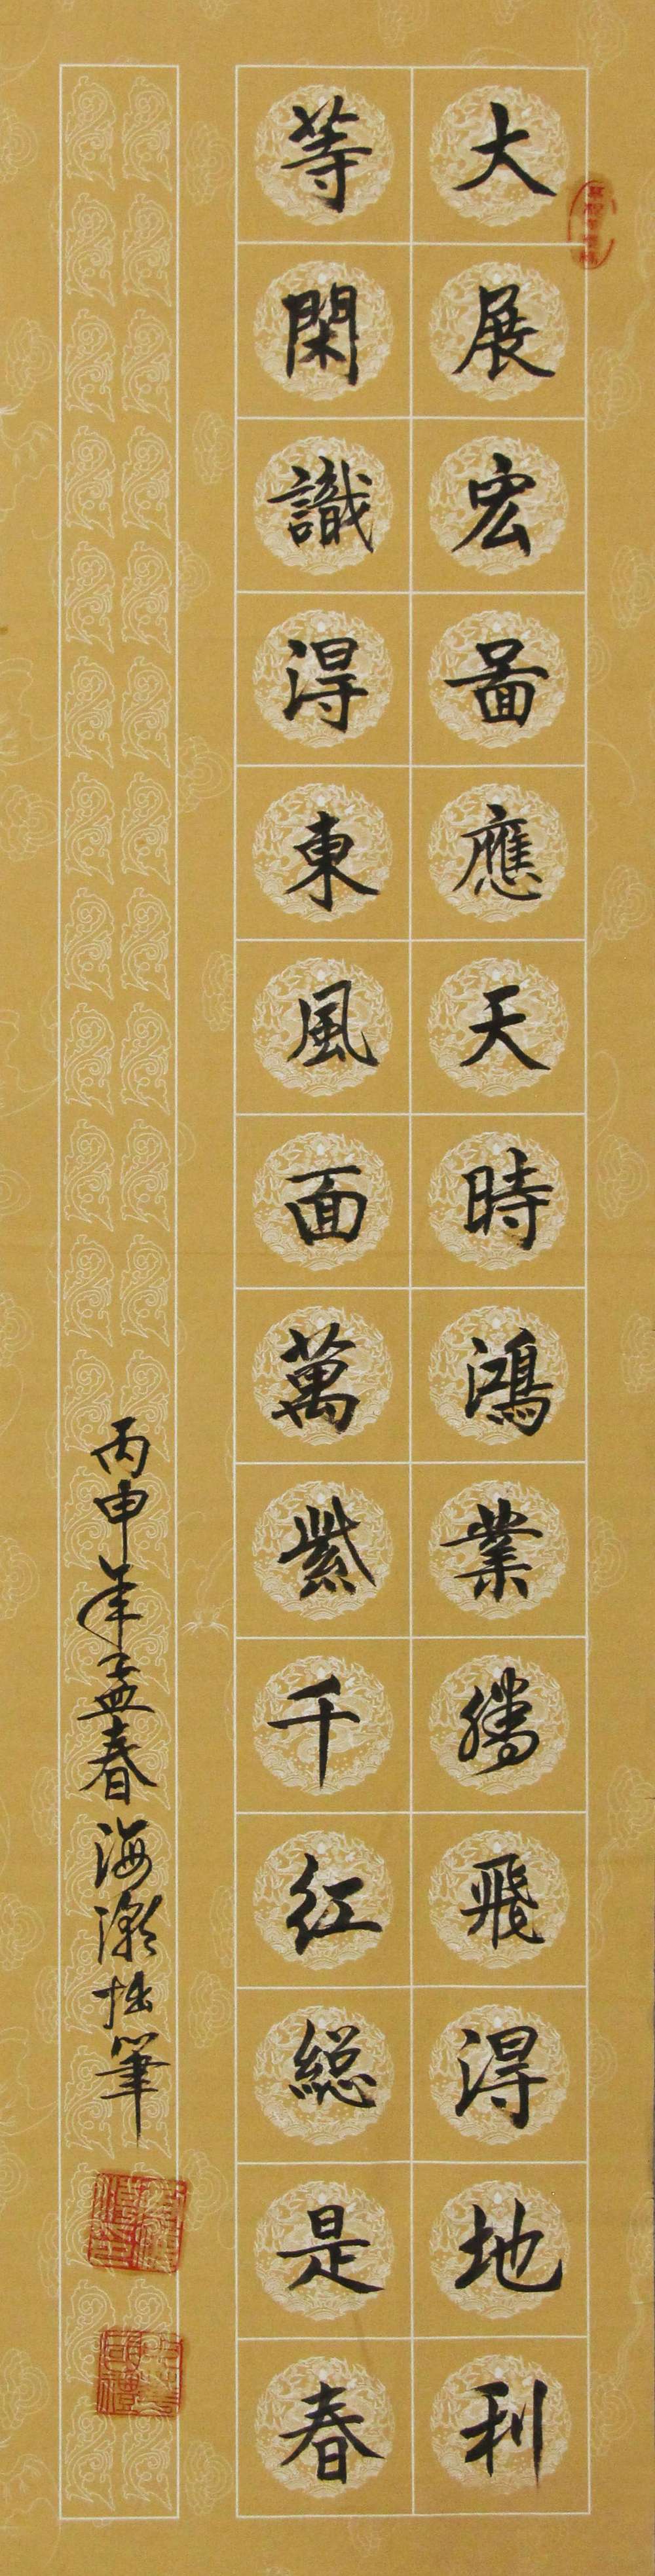 大展宏啚應天時鴻業騰飛淂地利
等閑識淂東風面萬紫千紅緫是春
丙申年孟春海瀨拙筆